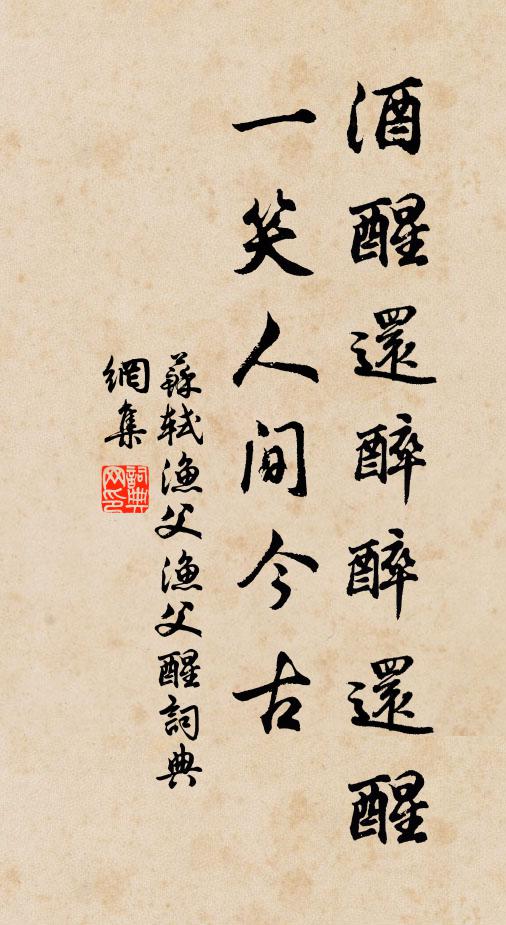 酒醒還醉醉還醒
一笑人間今古
蘇軾漁父漁父醒詞典
網集
詞典網印